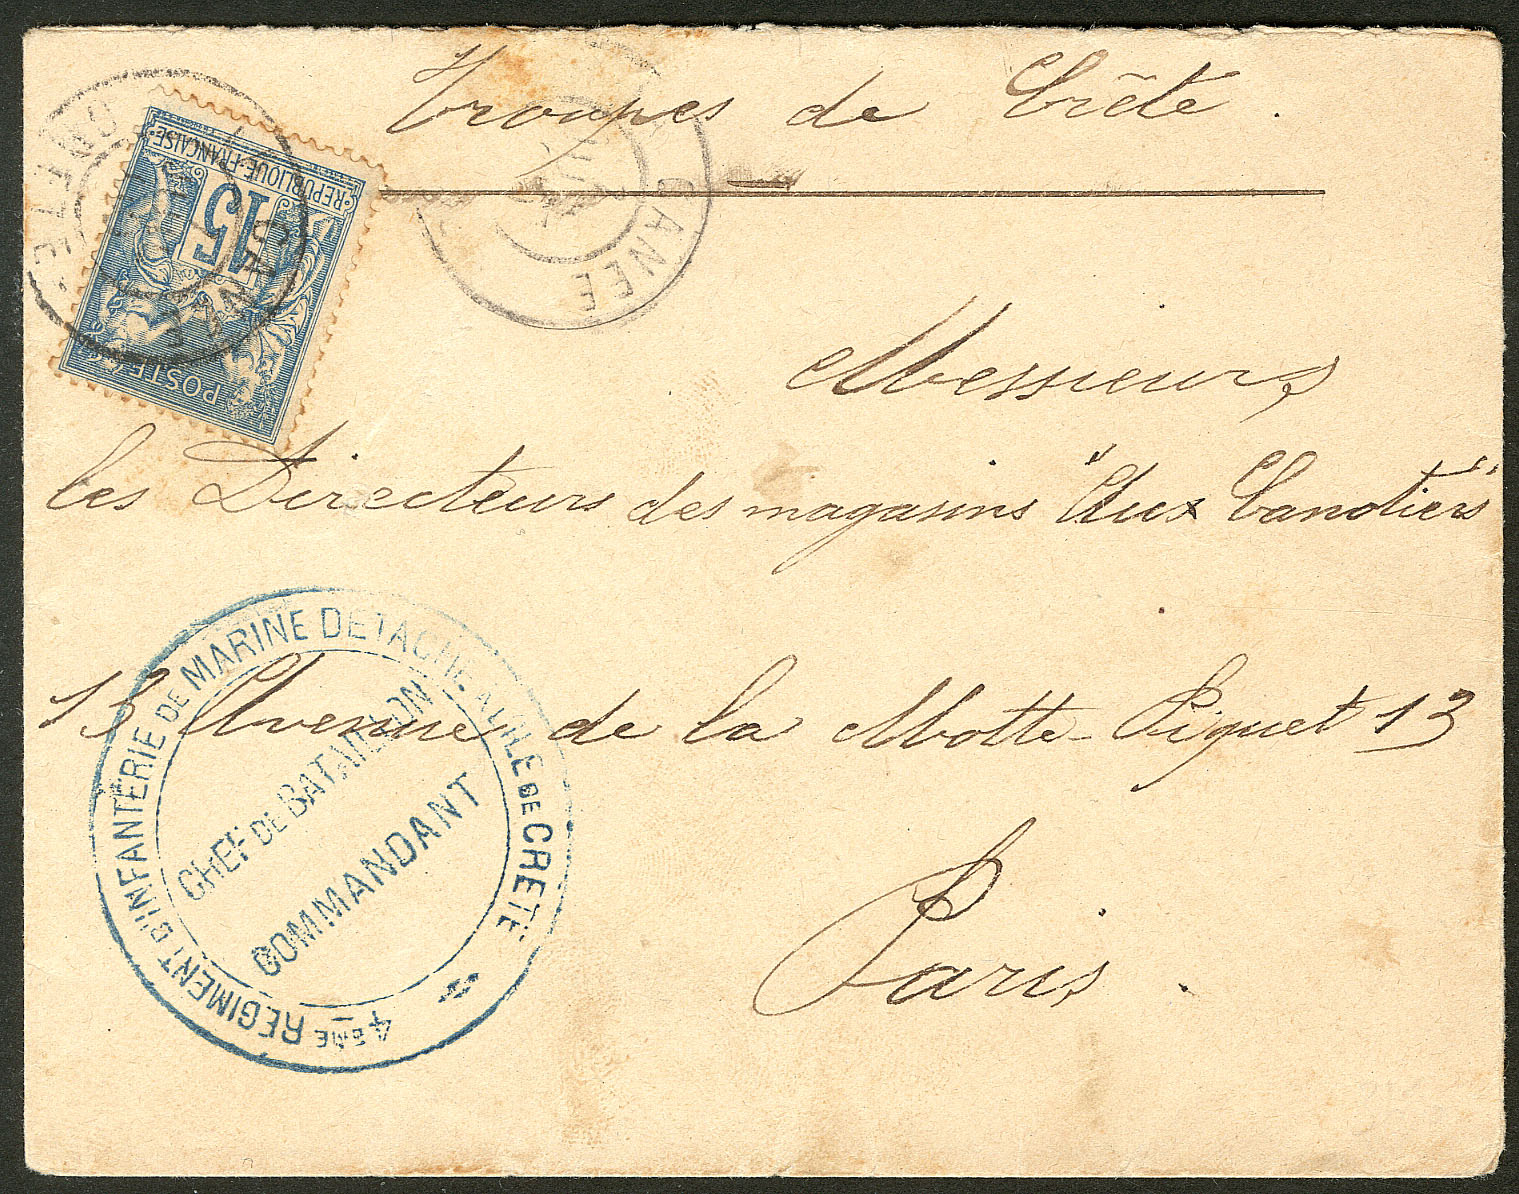 Troupes de Crête.
RÉPUBLIQUE·FRANÇAISE
15
POSTES
CANEE
CRETE
CANEE
Messieurs
les Directeurs des magasins "Aux Canotiers"
13 Avenue de la Motte-Piquet 13
Paris.
4EME REGIMENT D'INFANTERIE DE MARINE DETACHE A L'ILE DE CRÈTE
CHEF DE BATAILLON
COMMANDANT